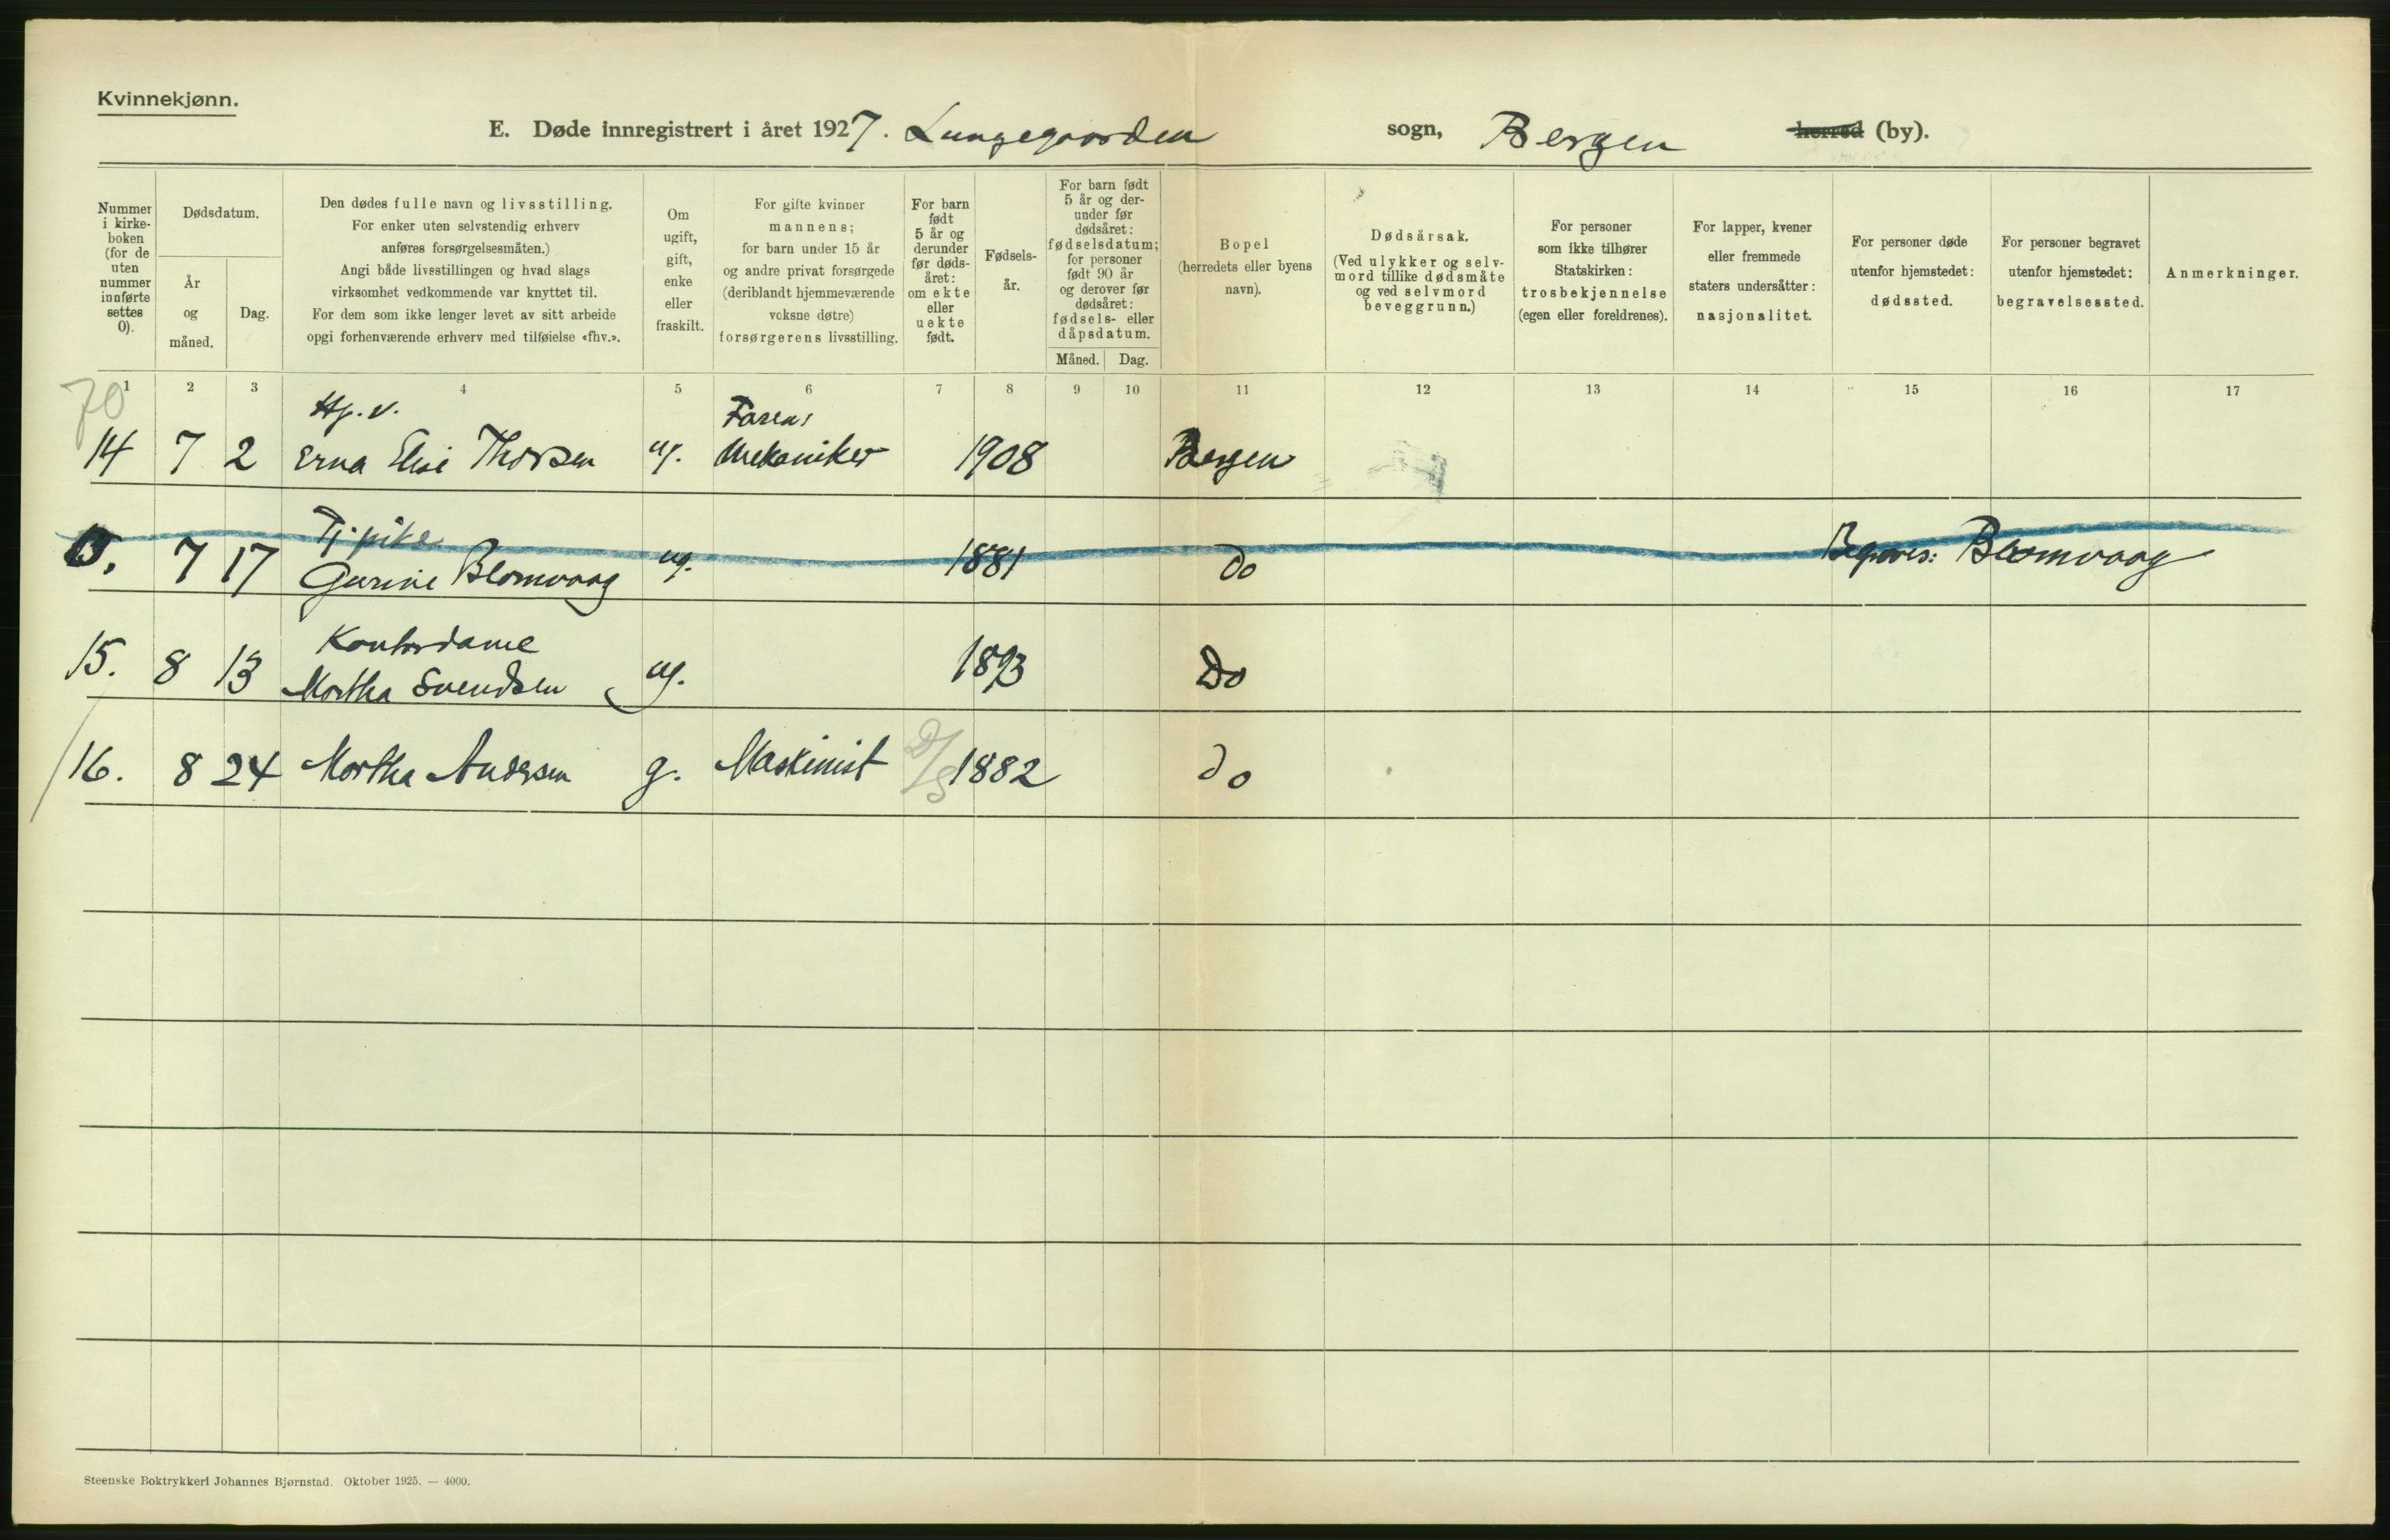 Kvinnekjønn.
E. Døde innregistrert i året 1927. Lungegaarden sogn, Bergen herred (by).
Nummer i kirke-boken (for de uten nummer innførte settes 0).
Dødsdatum.
År og måned.
Dag.
Den dødes fulle navn og livsstilling.
For enker uten selvstendig erhverv
anføres forsørgelsesmåten.)
Angi både livsstillingen og hvad slags
virksomhet vedkommende var knyttet til.
For dem som ikke lenger levet av sitt arbeide
opgi forhenværende erhverv med tilføielse «fhv.».
Om ugift, gift, enke eller fraskilt.
For gifte kvinner
mannens;
for barn under 15 år
og andre privat forsørgede
(deriblandt hjemmeværende
voksne døtre)
forsørgerens livsstilling.
For barn født 5 år og derunder før døds-året: om ekte eller uekte født.
Fødsels-år.
For barn født 5 år og der-under før dødsåret: fødselsdatum; for personer født 90 år og derover før dødsåret: fødsels- eller dåpsdatum.
Måned. Dag.
Bopel
(herredets eller byens
navn).
Dødsårsak.
(Ved ulykker og selv-
mord tillike dødsmåte
og ved selvmord
beveggrunn.)
For personer
som ikke tilhører
Statskirken:
trosbekjennelse
(egen eller foreldrenes).
For lapper, kvener
eller fremmede
staters undersåtter:
nasjonalitet.
For personer døde
utenfor hjemstedet:
dødssted.
For personer begravet
utenfor hjemstedet:
begravelsessted.
Anmerkninger.
1 2 3 4 5 6 7 8 9 10 11 12 13 14 15 16 17
70
Hj. v. Faren:
14 7 2 Erna Elise Thorsen ug. Mekaniker 1908 Bergen
Tj. pike
7 17 Gurine Blomvaag ug. 1881 do Begraves: Blomvaag
Kontordame
15. 8 13 Martha Svendsen ug. 1893 Do
16. 8 24 Martha Andersen g. Maskinist 1882 do
Steenske Boktrykkeri Johannes Bjørnstad. Oktober 1925. — 4000.